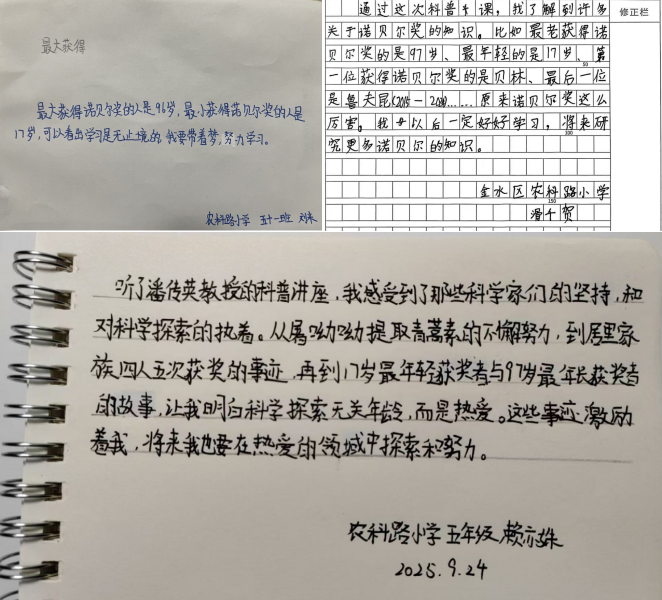 最大获得
最大获得诺贝尔奖的人是96岁,最小获得诺贝尔奖的人是
17岁,可以看出学习是无止境的,我要带着梦,努力学习。
农科路小学 五十一班
通过这次科普课,我了解到许多
关于诺贝尔奖的知识。比如最老获得诺
贝尔奖的是97岁、最年轻的是17岁、第
一位获得诺贝尔奖的是贝林、最后一位
是鲁夫昆……原来诺贝尔奖这么
厉害。我以后一定好好学习,将来研
究更多诺贝尔的知识。
金水区农科路小学
修正栏
50
100
150
听了潘传英教授的科普讲座,我感受到了那些科学家们的坚持,和
对科学探索的执着。从屠呦呦提取青蒿素的不懈努力,到居里家
族四人五次获奖的事迹,再到17岁最年轻获奖者与97岁最年长获奖者
的故事,让我明白科学探索无关年龄,而是热爱。这些事迹激励
着我,将来我也要在热爱的领域中探索和努力。
农科路小学五年级 赖亦姝
2025.9.24